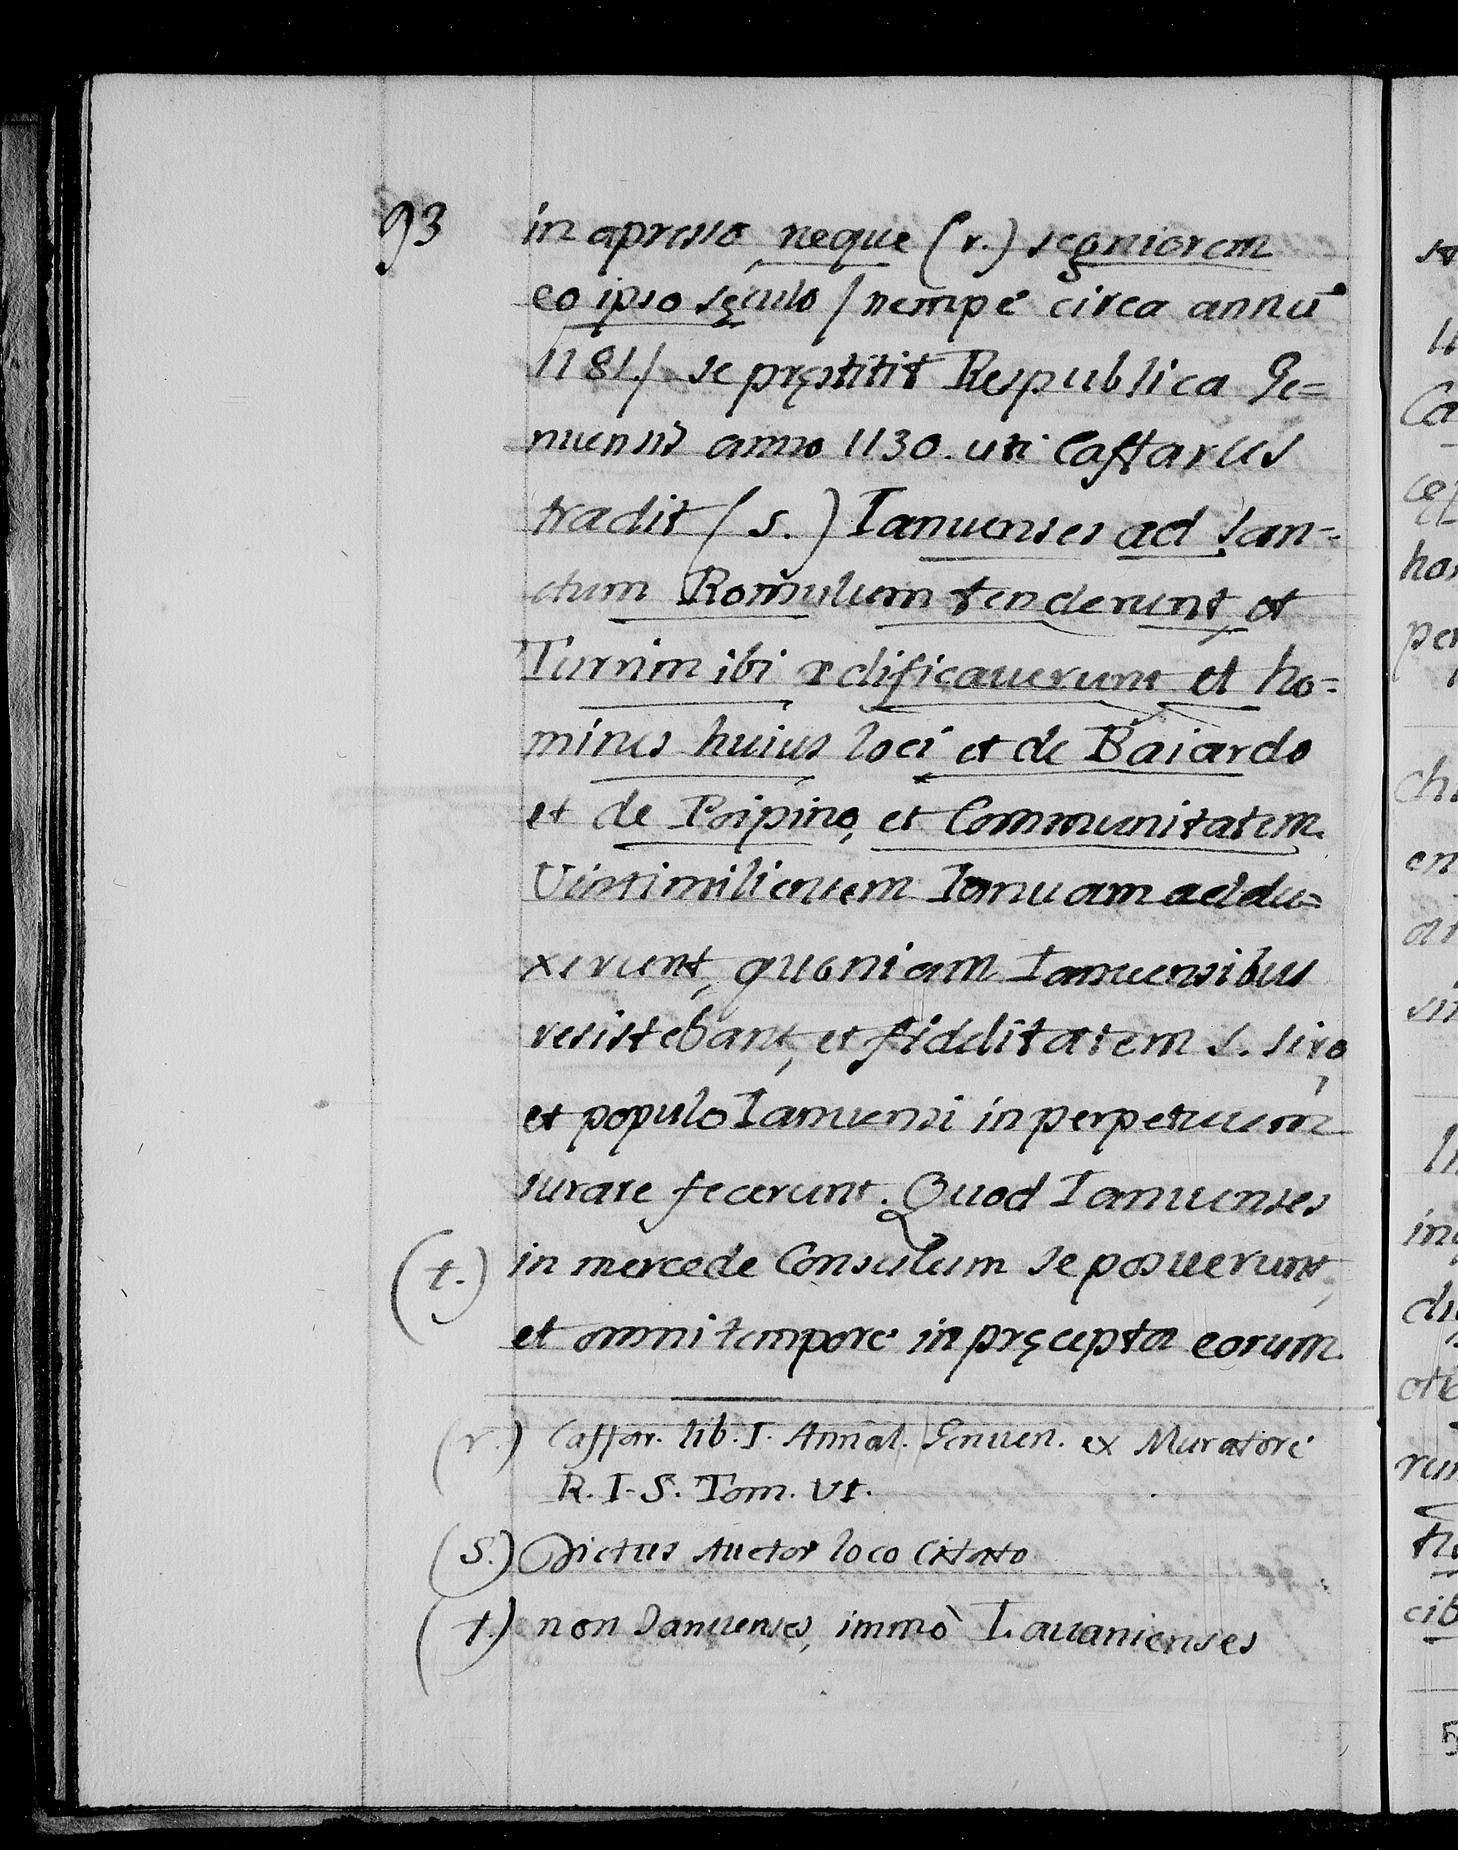 93
in apresso neque (r.) segniorem
eo ipso sęculo / nempè circa annū
1181./ se pręstitit Respublica Ge=
nuensis anno 1130. uti Caffarus
tradit (s.) Ianuenses ad San=
ctum Romulum tenderunt, et
Turrim ibi ædificauerunt et ho=
mines huius loci et de Baiardo
et de Poipino, et Communitatem
Uintimiliensem Ianuam addu=
xerunt, quoniam Ianuensibus
resistebant, et fidelitatem S. Siro,
et populo Ianuensi in perpetuum
iurare fecerunt. Quod Ianuenses
(t.) in mercede Consulum se posuerunt,
et omni tempore in pręcepta eorum
(r.) Caffar. lib. I. Annal. Genuen. ex Muratore
R. I. S. Tom. VI.
(s.) Dictus Auctor loco Citato
(t.) non Ianuenses, immò Lauanienses